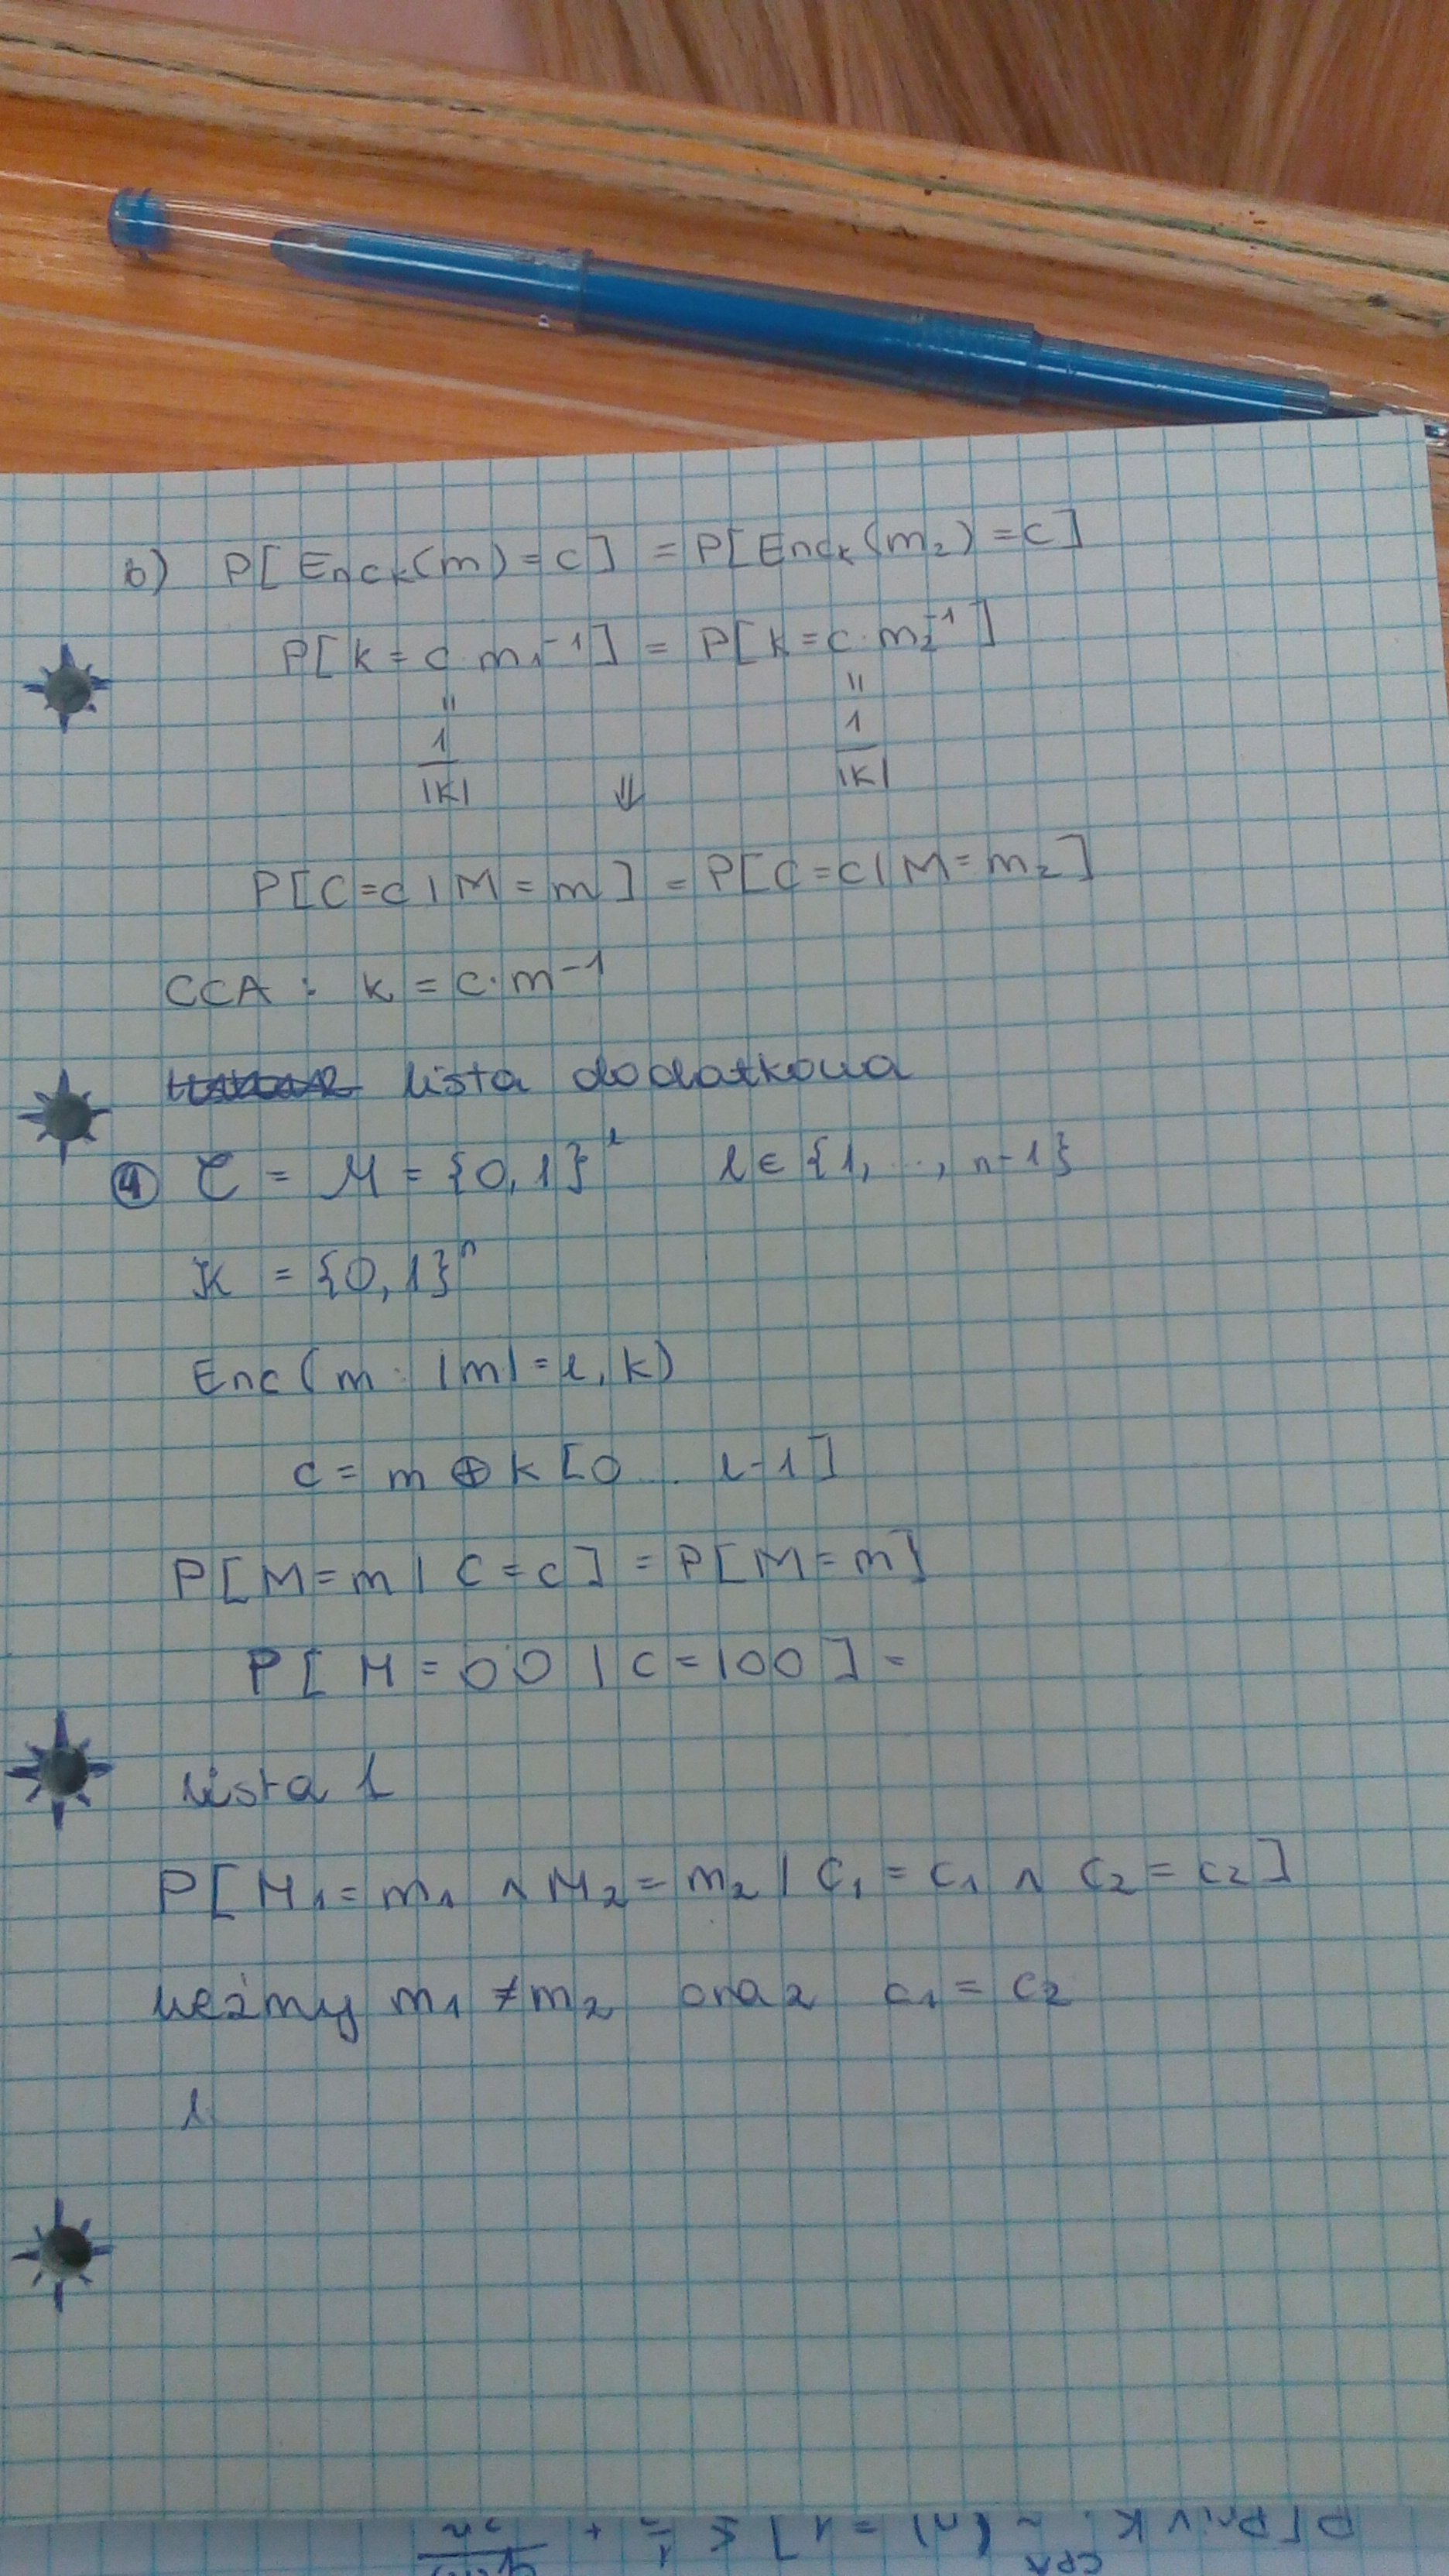 b) P[Enck(m) = c] = P[Enck(m₂) = c]
P[k = c·m₁⁻¹] = P[k = c·m₂⁻¹]
= 1/|K| = 1/|K|
⇓
P[C=c | M=m] = P[C=c | M=m₂]
CCA: k = c·m⁻¹
lista dodatkowa
④ C = M = {0,1}ˡ l ∈ {1, ..., n-1}
K = {0,1}ⁿ
Enc(m: |m|=l, k)
c = m ⊕ k[0 ... l-1]
P[M=m | C=c] = P[M=m]
P[M=00 | C=100] =
lista 1
P[M₁=m₁ ∧ M₂=m₂ | C₁=c₁ ∧ C₂=c₂]
weźmy m₁ ≠ m₂ oraz c₁ = c₂
l
P[PrivK CPA (n) = 1] ≤ 1/2 +